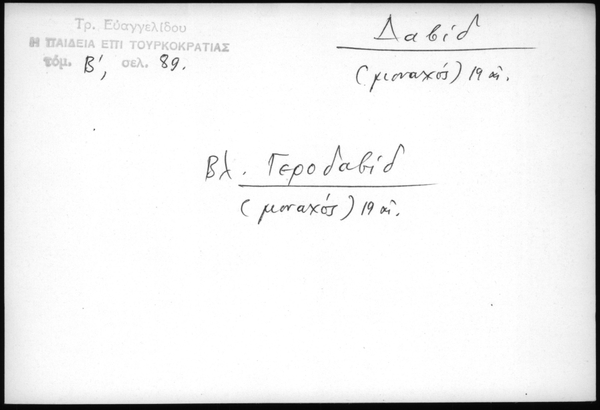 Τρ. Εὐαγγελίδου
Η ΠΑΙΔΕΙΑ ΕΠΙ ΤΟΥΡΚΟΚΡΑΤΙΑΣ
τόμ. Β', σελ. 89.
Δαβίδ
(μοναχός) 19 αἰ.
Βλ. Γεροδαβίδ
(μοναχός) 19 αἰ.